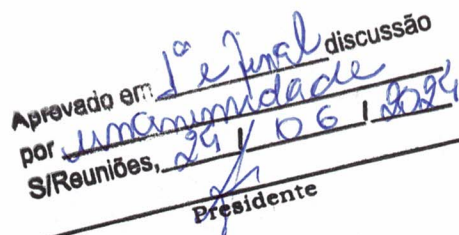 Aprovado em 1ª e final discussão
por unanimidade
S/Reuniões, 24 / 06 / 2024
Presidente